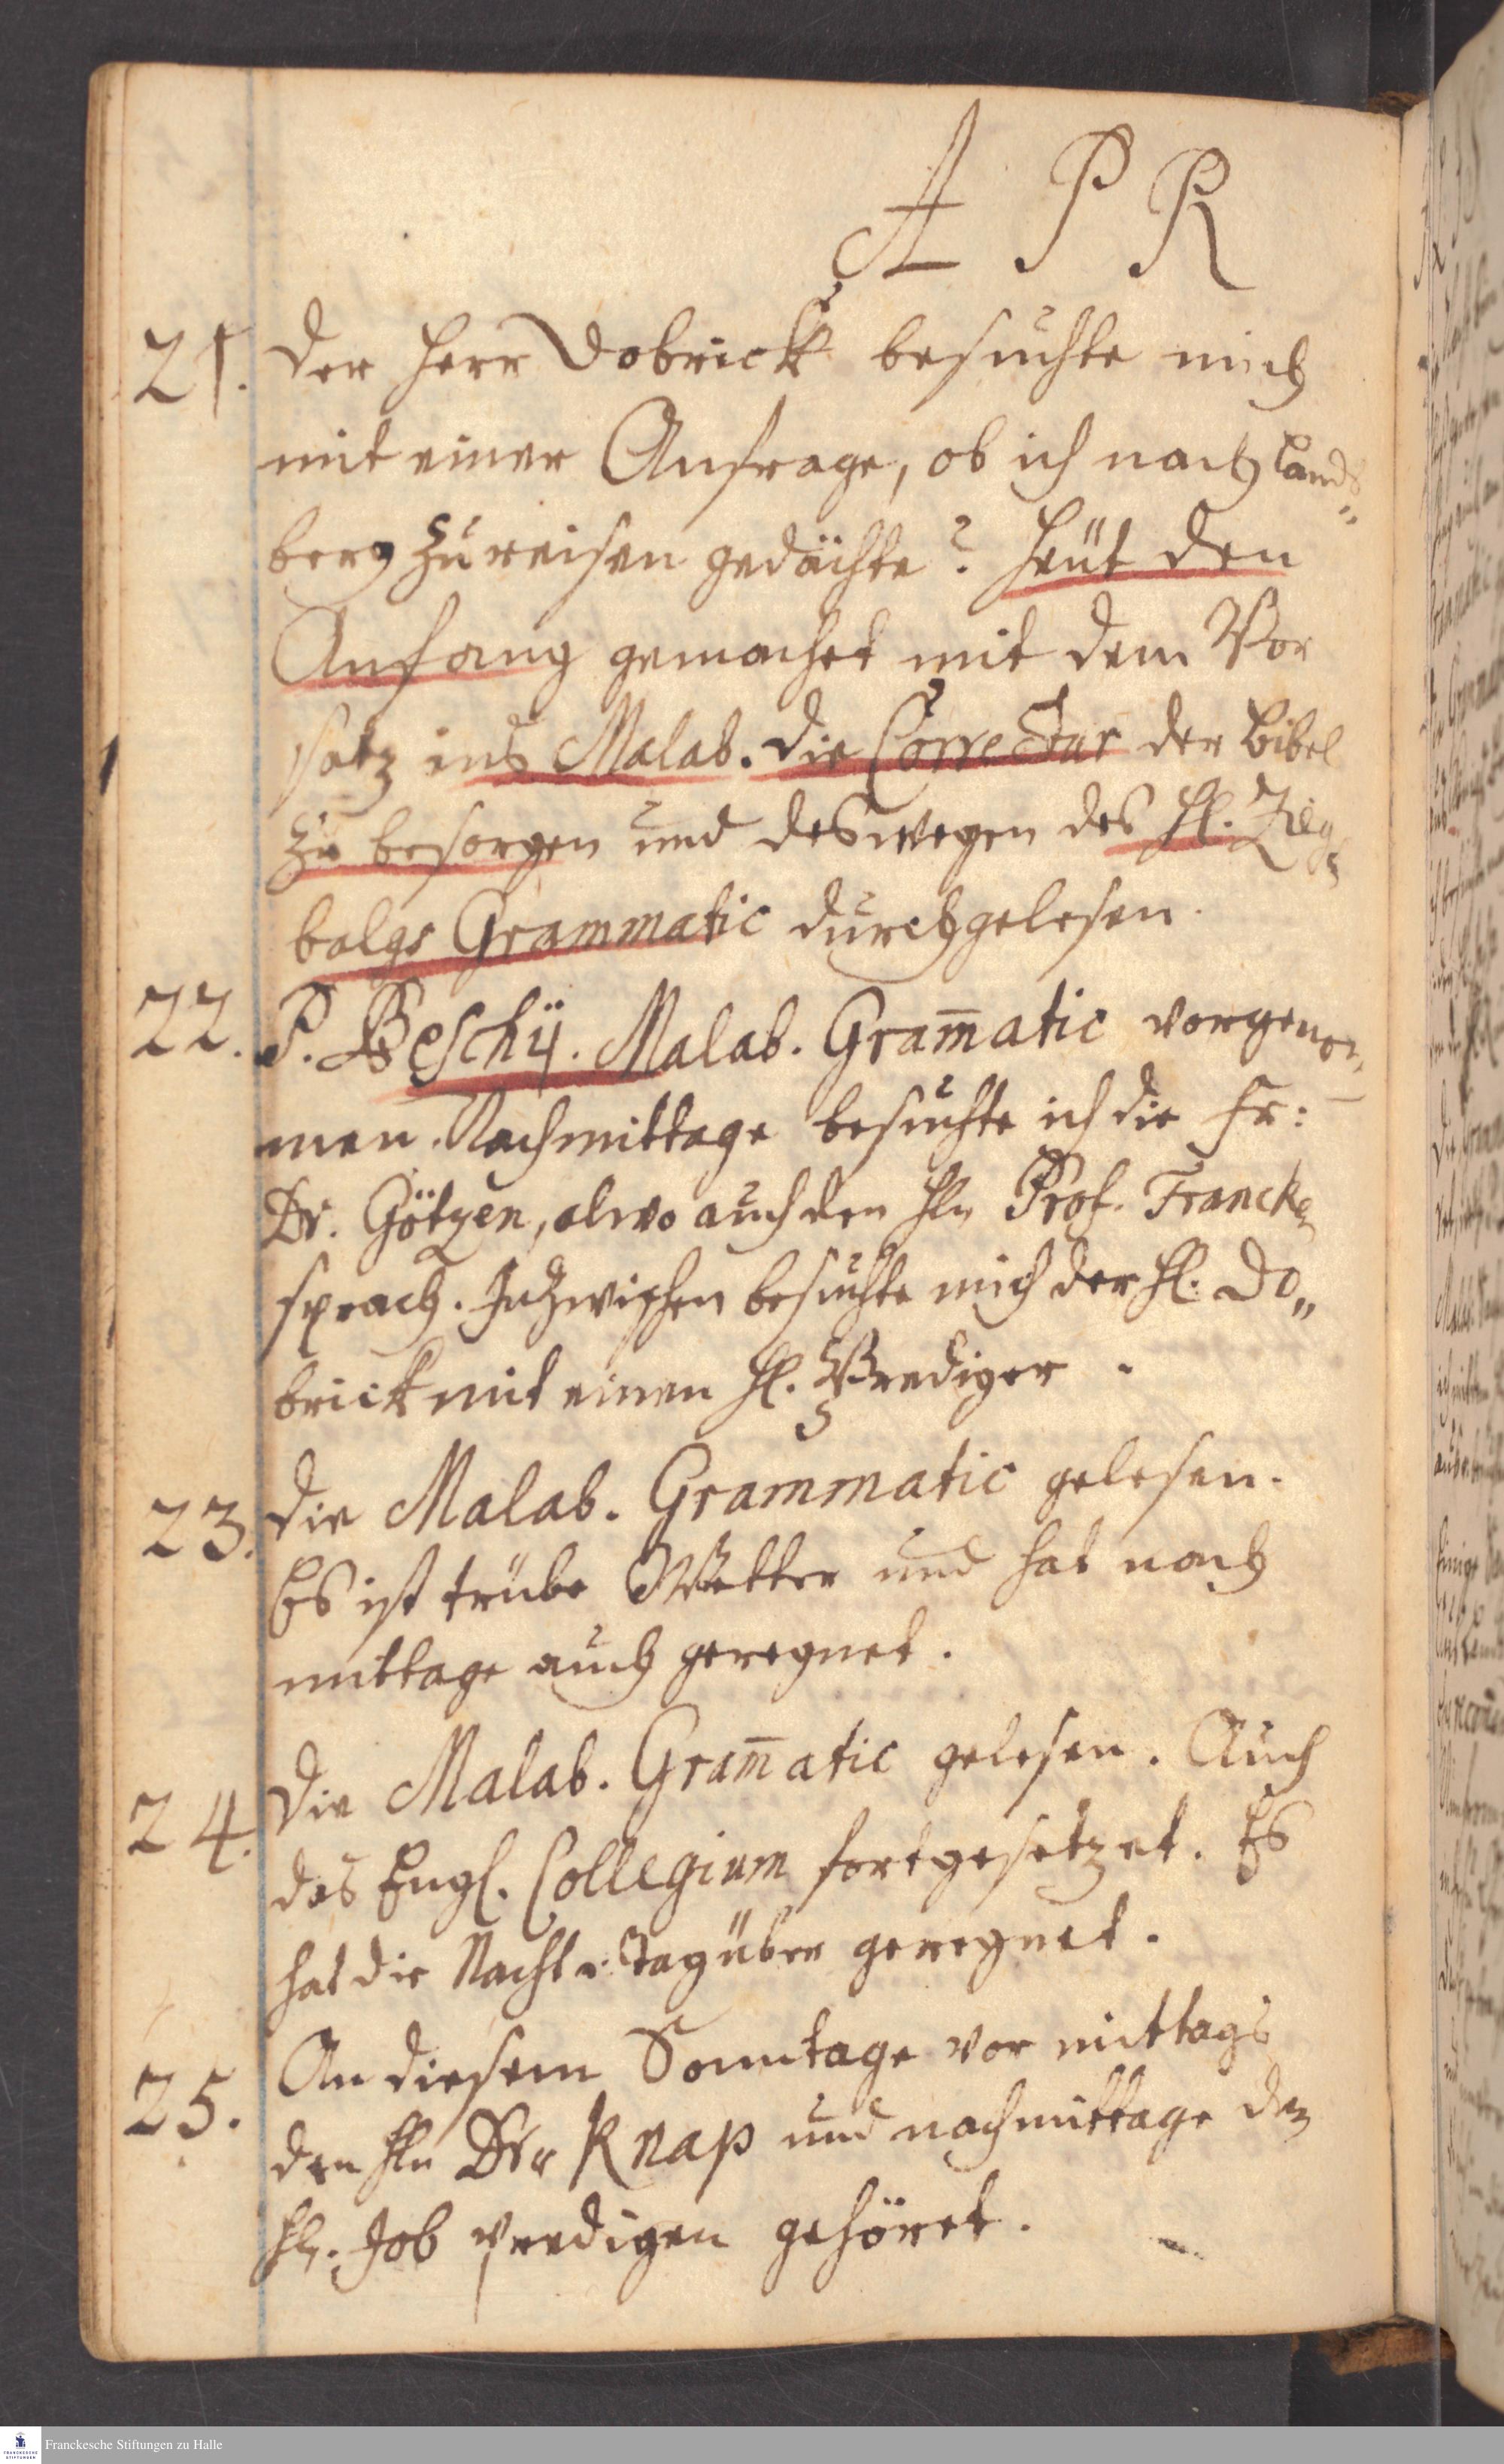 A P R
21. Der Herr Dobrick besuchte mich
mit einer Anfrage, ob ich nach Lands„
berg zu reisen gedächte? Heüt den
Anfang gemachet mit dem Vor
satz ins Malab. die Correctur der Bibel
zu besorgen und deswegen des H. Zieg„
balgs Grammatic durchgelesen.
22. P. Beschÿ. Malab. Gram̅atic vorgenom„
men. Nachmittage besuchte ich die Fr:
Dr. Götzen, alwo auch den Hln Prof. Francken
sprach. Inzwischen besuchte mich der Hl. Do„
brick mit einen Hl. Prediger.
23. Die Malab. Grammatic gelesen.
Es ist trübe Wetter und hat nach
mittage auch geregnet.
24. Die Malab. Gram̅atic gelesen. Auch
das Engl. Collegium fortgesetzet. Es
hat die Nacht u. Tag über geregnet.
25. An diesem Sonntage vor mittags
den Hln Dr. Knap und nachmittage den
Hl. Job predigen gehöret.
FRANCKESCHE STIFTUNGEN
Franckesche Stiftungen zu Halle